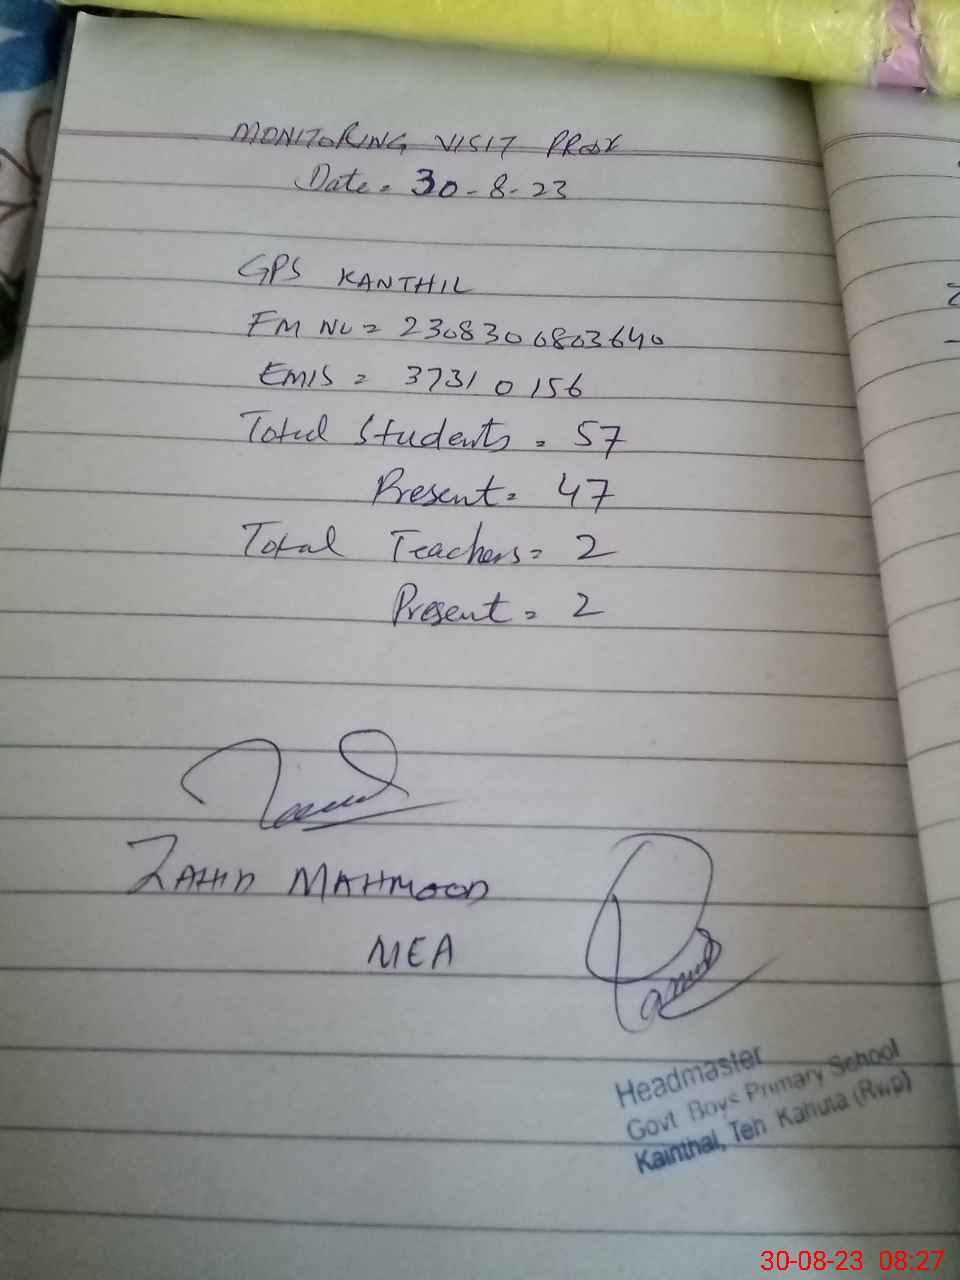 MONITORING VISIT PROOF
Date = 30-8-23
GPS KANTHIL
FM NO = 2308300803640
EMIS = 37310156
Total Students = 57
Present = 47
Total Teachers = 2
Present = 2
ZAHID MAHMOOD
MEA
Headmaster
Govt Boys Primary School
Kainthal, Teh Kahuta (Rwp)
30-08-23 08:27